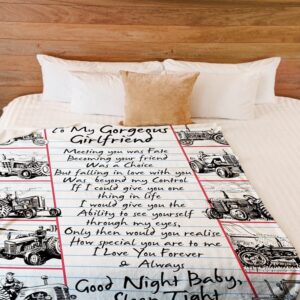 To My Gorgeous
Girlfriend
Meeting you was Fate
Becoming your friend
Was a Choice
But falling in love with you
Was beyond my Control
If I could give you one
thing in life
I would give you the
Ability to see yourself
through my eyes,
Only then would you realise
How special you are to me
I Love You Forever
& Always
Good Night Baby,
Sleep Tight